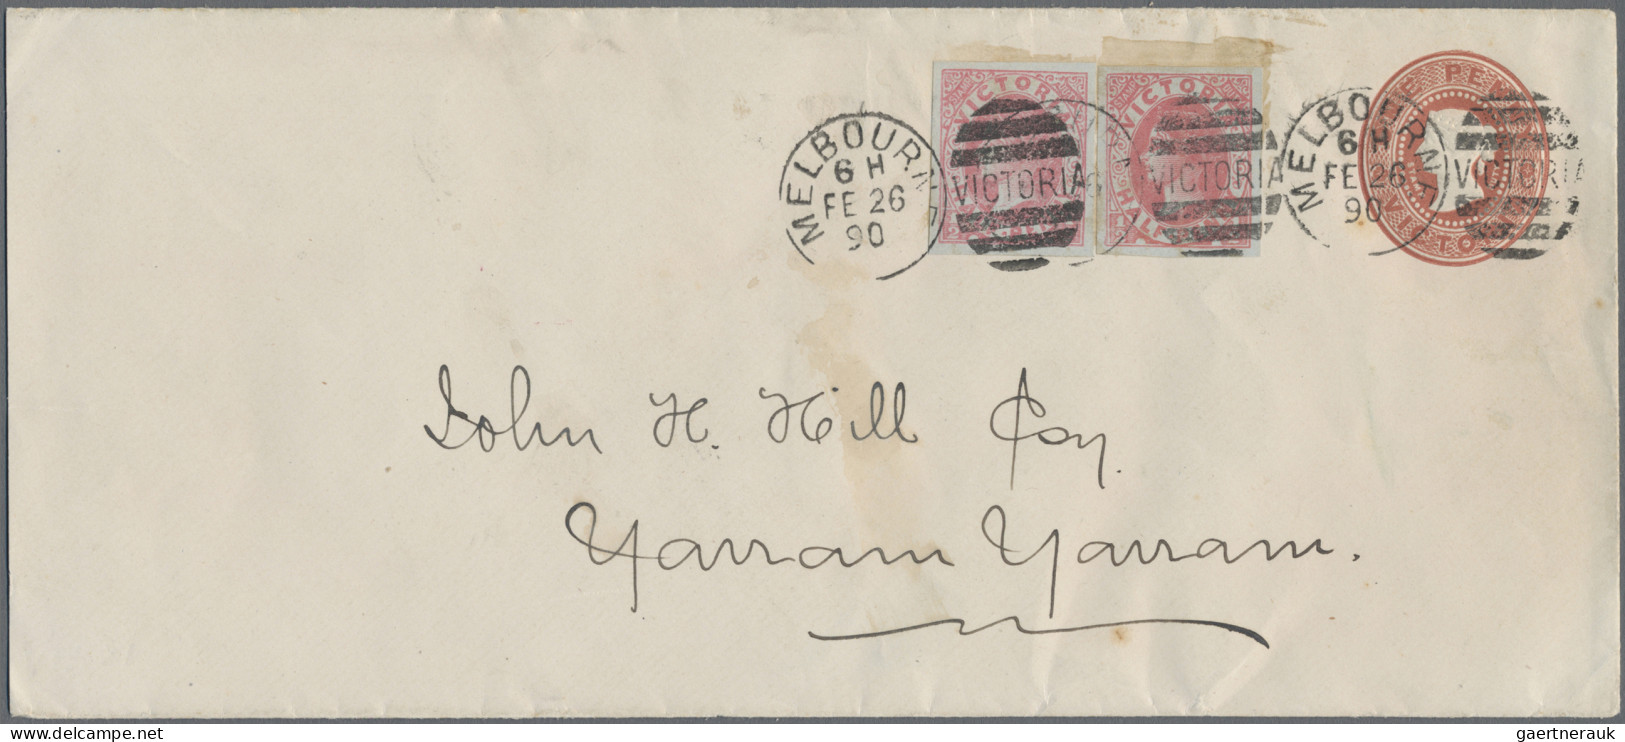 VICTORIA
VICTORIA
ONE PENNY
VICTORIA
MELBOURNE
6 H
FE 26
90
VICTORIA
VICTORIA
MELBOURNE
6 H
FE 26
90
VICTORIA
HALF
John H. Hill Esq.
Yarram Yarram.
gaertnerauk